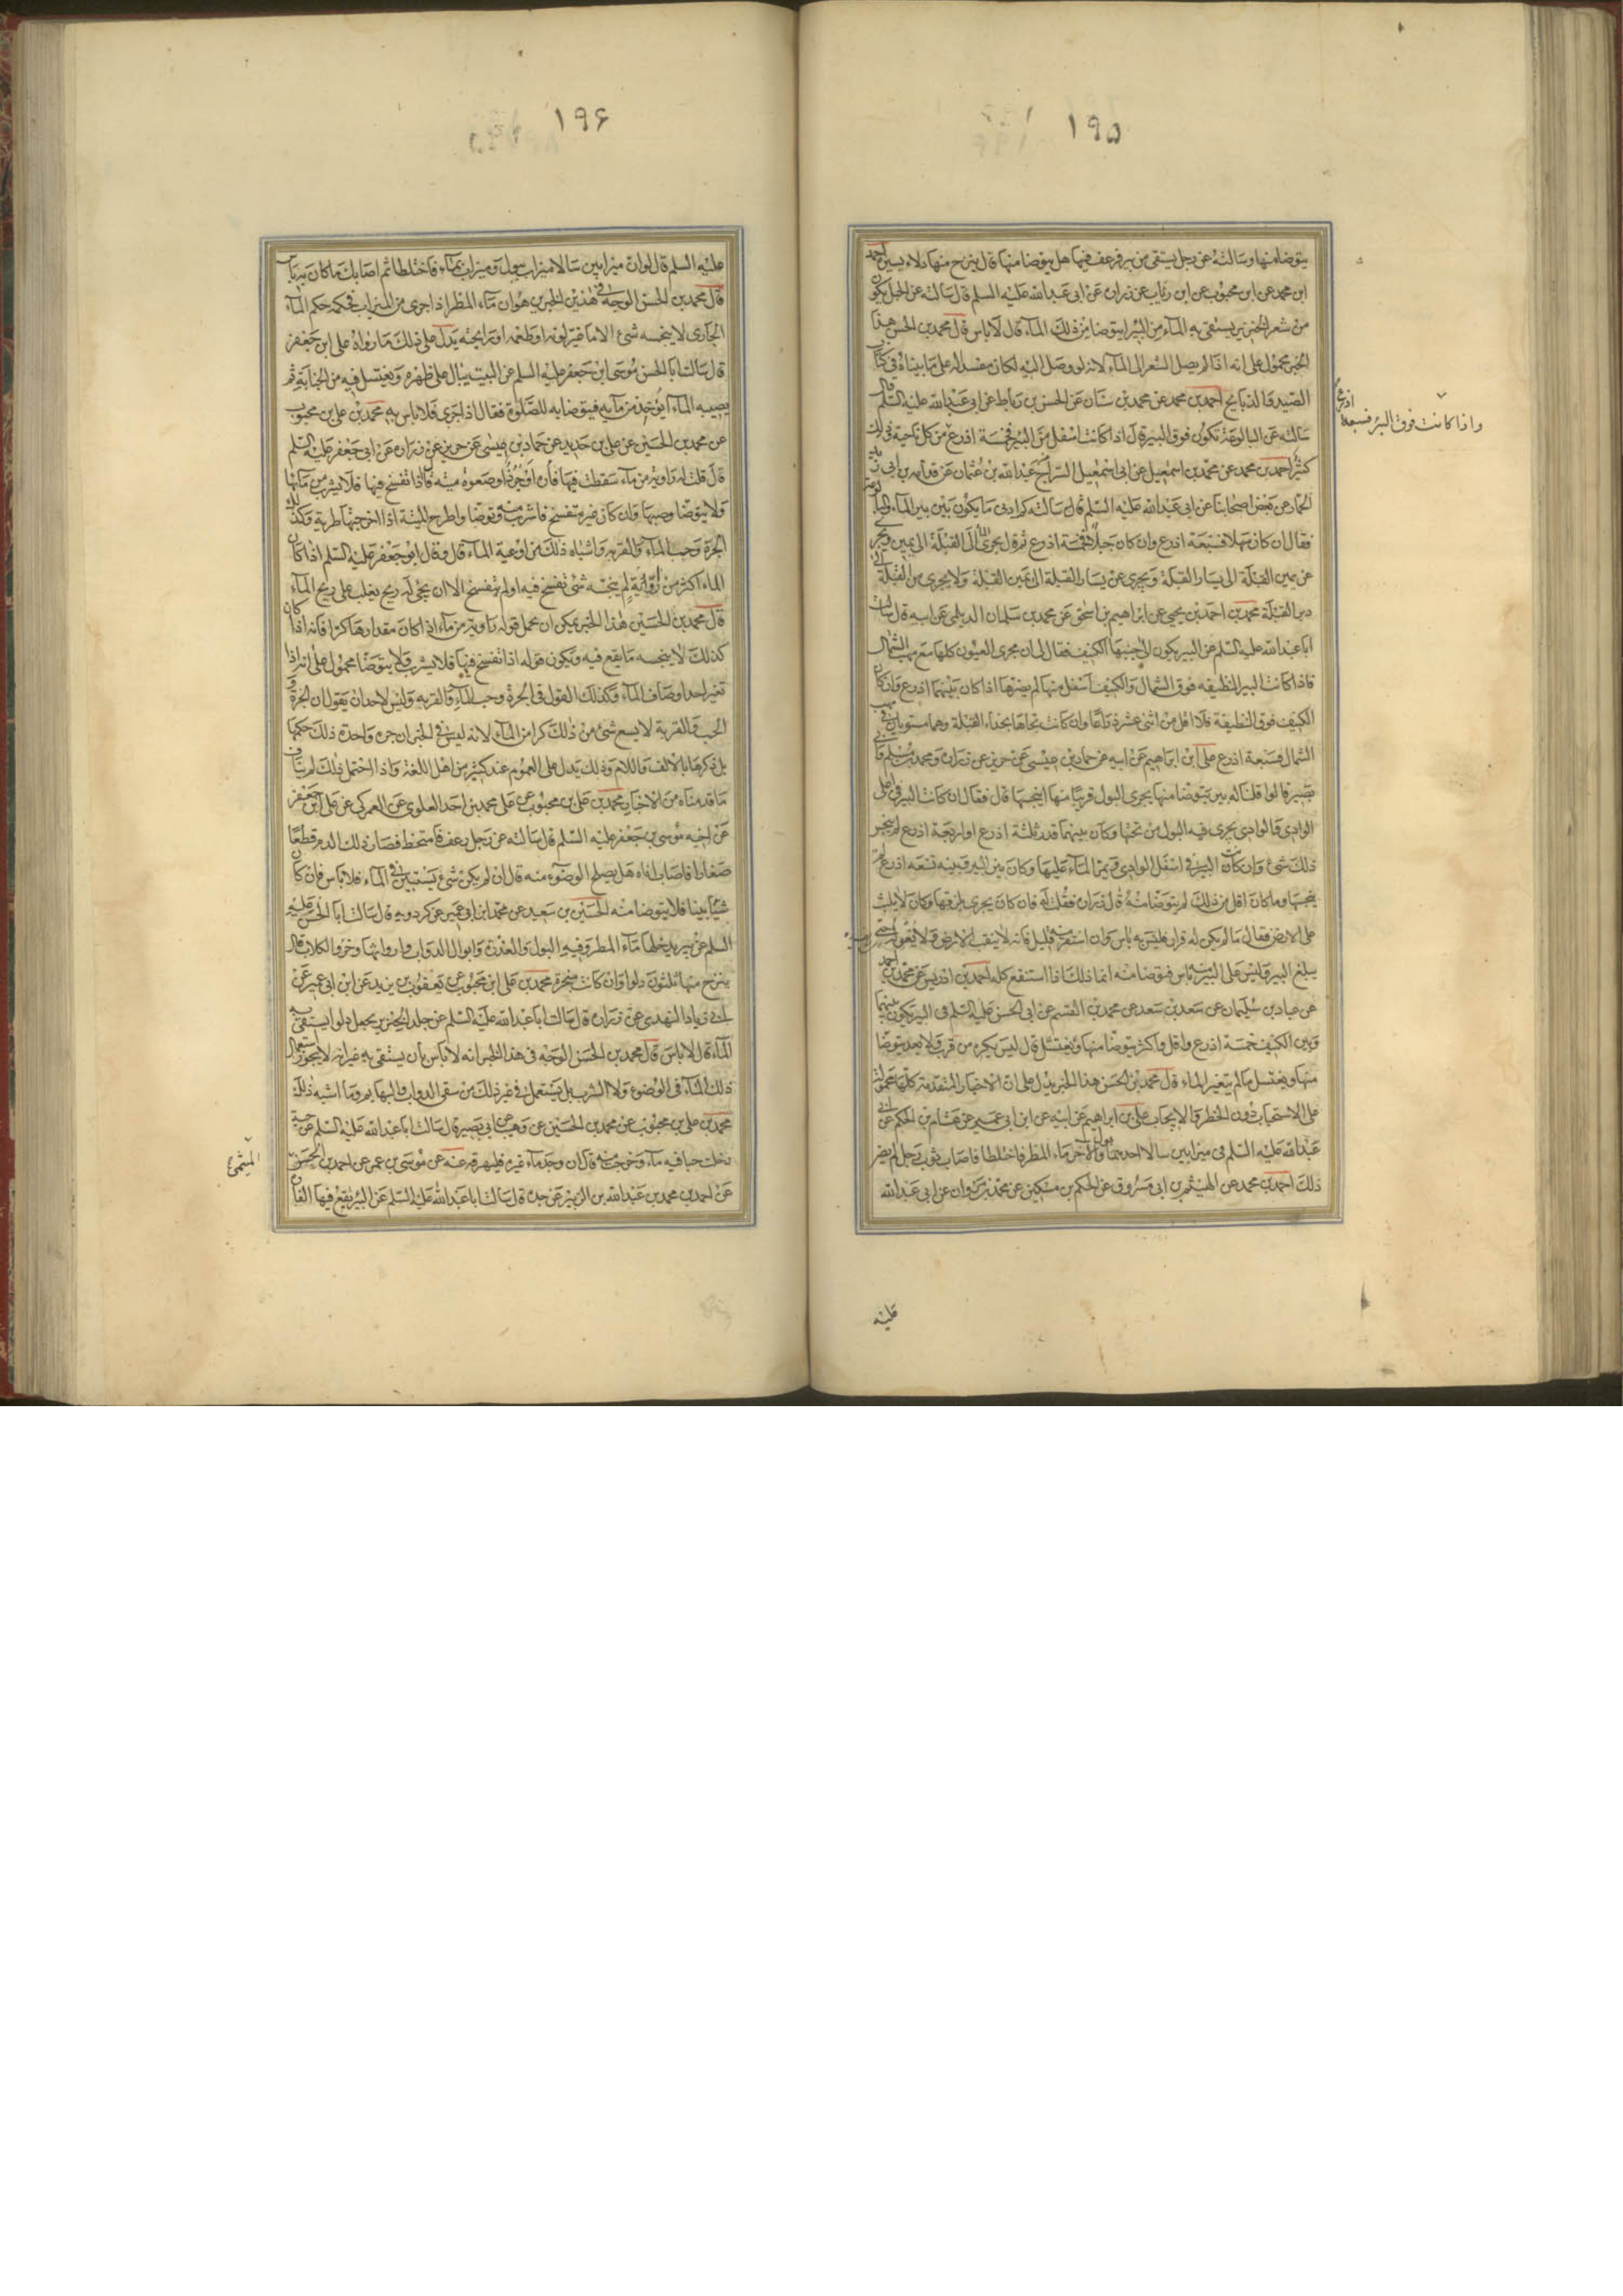 ۱۹۵
يتوضا منها وسالته عن رجل يستقى من بير فرعف فيها هل يتوضا منها قال ينزح منها دلاء يسيرة احمد
ابن محمد عن ابن محبوب عن ابن رئاب عن زرارة عن ابى عبد الله عليه السلم قال سالته عن الحبل يكون
من شعر الخنزير يستقى به الماء من البير ايتوضا من ذلك الماء قال لا باس قال محمد بن الحسن هذا
الخبر محمول على انه اذا لم يصل الشعر الى الماء لانه لو وصل اليه لكان مفسدا له على ما بيناه فى كتاب
الصيد والذبايح احمد بن محمد عن محمد بن سنان عن الحسن بن رباط عن ابى عبد الله عليه السلم قال
سالته عن البالوعة تكون فوق البير قال اذا كانت اسفل من البير فخمسة اذرع من كل ناحية وذلك
واذا كانت فوق البئر فسبعة اذرع
كثير احمد بن محمد عن محمد بن اسمعيل عن ابى اسمعيل السراج عبد الله بن عثمان عن قدامة بن ابى زيد
الحماد عن بعض اصحابنا عن ابى عبد الله عليه السلم قال سالته كم ادنى ما يكون بين بير الماء والبالوعة
فقال ان كان سهلا فسبعة اذرع وان كان جبلا فخمسة اذرع ثم قال يجرى الماء الى القبلة الى يمين ويجرى
عن يمين القبلة الى يسار القبلة ويجرى عن يسار القبلة الى يمين القبلة ولا يجرى من القبلة الى
دبر القبلة محمد بن احمد بن يحيى عن ابراهيم بن اسحق عن محمد بن سليمان الديلمى عن ابيه قال سالت
ابا عبد الله عليه السلم عن البير يكون الى جنبها الكنيف فقال لى ان مجرى العيون كلها مع مهب الشمال
فاذا كانت البير النظيفه فوق الشمال والكنيف اسفل منها لم يضرها اذا كان بينهما اذرع وان كان
الكنيف فوق النظيفة فلا اقل من اثنى عشر ذراعا وان كانت تجاها بحذاء القبلة وهما مستويان فى مهب
الشمال فسبعة اذرع على ابن ابراهيم عن ابيه عن حماد بن عيسى عن حريز عن زرارة ومحمد بن مسلم وابى
بصير قالوا قلنا له بير يتوضا منها يجرى البول قريبا منها اينجسها قال فقال ان كانت البير فى اعلى
الوادى والوادى يجرى فيه البول من تحتها وكان بينهما قدر ثلثة اذرع او اربعة اذرع لم ينجس
ذلك شئ وان كانت البير فى اسفل الوادى ويمر الماء عليها وكان بين البير وبينه تسعة اذرع لم
ينجسها وما كان اقل من ذلك لم يتوضا منه قال زرارة فقلت له فان كان يجرى بلزقها وكان لا يلبث
على الارض فقال ما لم يكن له قرار فليس به باس وان استقر منه قليل فانه لا ينقب الارض ولا يغوله حتى
يبلغ البير وليس على البير منه باس فتوضا منه انما ذلك اذا استنقع كله احمد بن ادريس عن محمد بن احمد
عن عباد بن سليمان عن سعد بن سعد عن محمد بن القسم عن ابى الحسن عليه السلم فى البير تكون بينها
وبين الكنيف خمسة اذرع واقل واكثر يتوضا منها قال ليس يكره من قرب ولا بعد يتوضا
منها ويغتسل ما لم يتغير الماء قال محمد بن الحسن هذا الخبر يدل على ان الاخبار المتقدمة كلها محمولة
على الاستحباب دون الحظر والايجاب على بن ابراهيم عن ابيه عن ابن ابى عمير عن هشام بن الحكم عن ابى
عبد الله عليه السلم فى ميزابين سالا احدهما بول والاخر ماء المطر فاختلطا فاصاب ثوب رجل لم يضره
ذلك احمد بن محمد عن الهيثم بن ابى مسروق عن الحكم بن مسكين عن محمد بن مروان عن ابى عبد الله
عليه
۱۹۶
عليه السلم قال لو ان ميزابين سالا ميزاب ببول وميزاب بماء فاختلطا ثم اصابك ما كان به باس
قال محمد بن الحسن الوجه فى هذين الخبرين هو ان ماء المطر اذا جرى من الميزاب فحكمه حكم الماء
الجارى لا ينجسه شئ الا ما غير لونه او طعمه او رايحته يدل على ذلك ما رواه على ابن جعفر
قال سالت ابا الحسن موسى ابن جعفر عليه السلم عن البيت يبال على ظهره ويغتسل فيه من الجنابة ثم
يصيبه الماء ايؤخذ من مائه فيتوضا به للصلوة فقال اذا جرى فلا باس به محمد بن على بن محبوب
عن محمد بن الحسين عن على بن حديد عن حماد بن عيسى عن حريز عن زرارة عن ابى جعفر عليه السلم
قال قلت له راوية من ماء سقطت فيها فارة او جرذ او صعوة ميتة قال اذا تفسخ فيها فلا تشرب من مائها
ولا يتوضا وصبها وان كان غير متفسخ فاشرب منه وتوضا واطرح الميتة اذا اخرجتها طرية وكذلك
الجرة وحب الماء والقربه واشباه ذلك من اوعية الماء قال وقال ابو جعفر عليه السلم اذا كان
الماء اكثر من راوية لم ينجسه شئ تفسخ فيه او لم يتفسخ الا ان يجئ له ريح يغلب على ريح الماء
قال محمد بن الحسين هذا الخبر يمكن ان يحمل قوله راوية من ماء اذا كان مقدارها كرا فانه اذا كان
كذلك لا ينجسه ما يقع فيه ويكون قوله اذا تفسخ فيها فلا تشرب ولا يتوضا محمول على انه اذا
تغير احد اوصاف الماء وكذلك القول فى الجرة وحب الماء والقربه وليس لاحد ان يقول ان الجرة و
الحب والقربة لا يسع شئ من ذلك كرا من الماء لانه ليس فى الخبر ان جره واحدة ذلك حكمها
بل ذكرها بالالف واللام وذلك يدل على العموم عند كثير من اهل اللغة واذا احتمل ذلك لم يناف
ما قدمناه من الاخبار محمد بن على بن محبوب عن على محمد بن احمد العلوى عن العمركى عن على ابن جعفر
عن اخيه موسى بن جعفر عليه السلم قال سالته عن رجل رعف فامتخط فصار ذلك الدم قطعا
صغارا فاصاب اناه هل يصلح الوضوء منه قال ان لم يكن شئ يستبين فى الماء فلا باس وان كان
شيئا بينا فلا يتوضا منه الحسين بن سعيد عن محمد ابن ابى عمير عن كردويه قال سالت ابا الحسن عليه
السلم عن بير يدخلها ماء المطر وفيه البول والعذرة وابوال الدواب وارواثها وخرؤ الكلاب قال
ينزح منها ثلثون دلوا وان كانت مبخرة محمد بن على ابن محبوب عن يعقوب بن يزيد عن ابن ابى عمير عن
ابى زياد النهدى عن زرارة قال سالت ابا عبد الله عليه السلم عن جلد الخنزير يجعل دلوا يستقى به
الماء قال لا باس قال محمد بن الحسن الوجه فى هذا الخبر انه لا باس بان يستقى به غير انه لا يجوز استعمال
ذلك الماء فى الوضوء ولا الشرب بل يستعمل فى غير ذلك من سقى الدواب والبهايم وما اشبه ذلك
محمد بن على بن محبوب عن محمد بن الحسين عن وهيب عن ابى بصير قال سالت ابا عبد الله عليه السلم عن حية
دخلت حبا فيه ماء وخرجت منه قال ان وجد ماء غيره فليهرقه عنه عن موسى بن عمر عن احمد بن الحسن
الميثمى
عن احمد بن محمد بن عبد الله بن الزبير عن جده قال سالت ابا عبد الله عليه السلم عن البئر يقع فيها الفارة